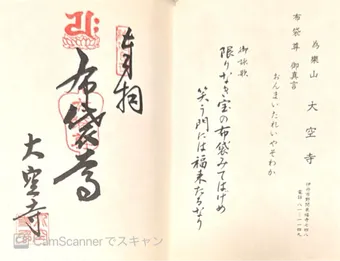 為楽山 大空寺
布袋尊 御真言
おんまいたれいやそわか
御詠歌
限りなき宝の布袋みてはけめ
笑う門には福来たるなり
奉拝
布袋尊
大空寺
CamScannerでスキャン